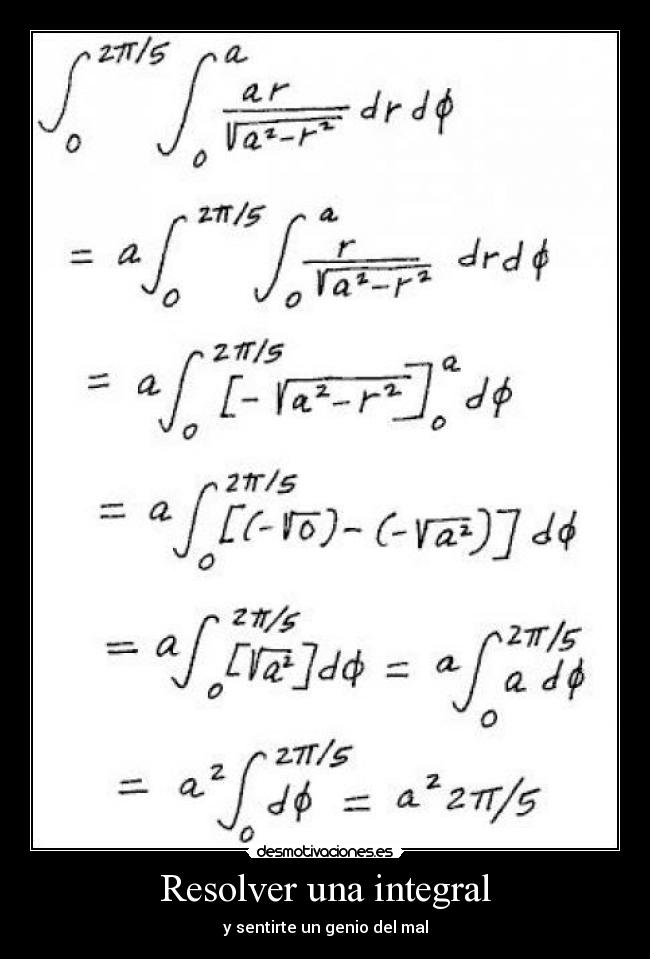 ∫₀^{2π/5} ∫₀^{a} ar/√(a²-r²) dr dϕ
= a∫₀^{2π/5} ∫₀^{a} r/√(a²-r²) drdϕ
= a∫₀^{2π/5} [-√(a²-r²)]₀^{a} dϕ
= a∫₀^{2π/5} [(-√0)-(-√a²)] dϕ
= a∫₀^{2π/5} [√a²]dϕ = a∫₀^{2π/5} a dϕ
= a²∫₀^{2π/5} dϕ = a²2π/5
desmotivaciones.es
Resolver una integral
y sentirte un genio del mal